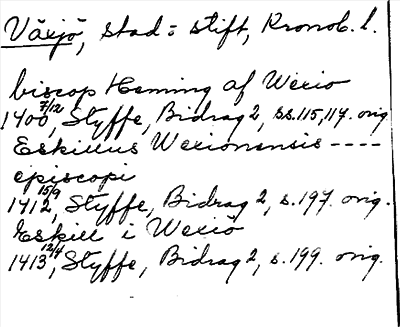 Växjö, stad = stift, Kronob. l.
biscop Heming af Wexio
1400 7/12, Styffe, Bidrag 2, ss. 115, 117. orig
Eskillus Wexionensis ----
episcopi
1412 15/9, Styffe, Bidrag 2, s. 197. orig.
Eskill i Wexiö
1413 12/4, Styffe, Bidrag 2, s. 199. orig.